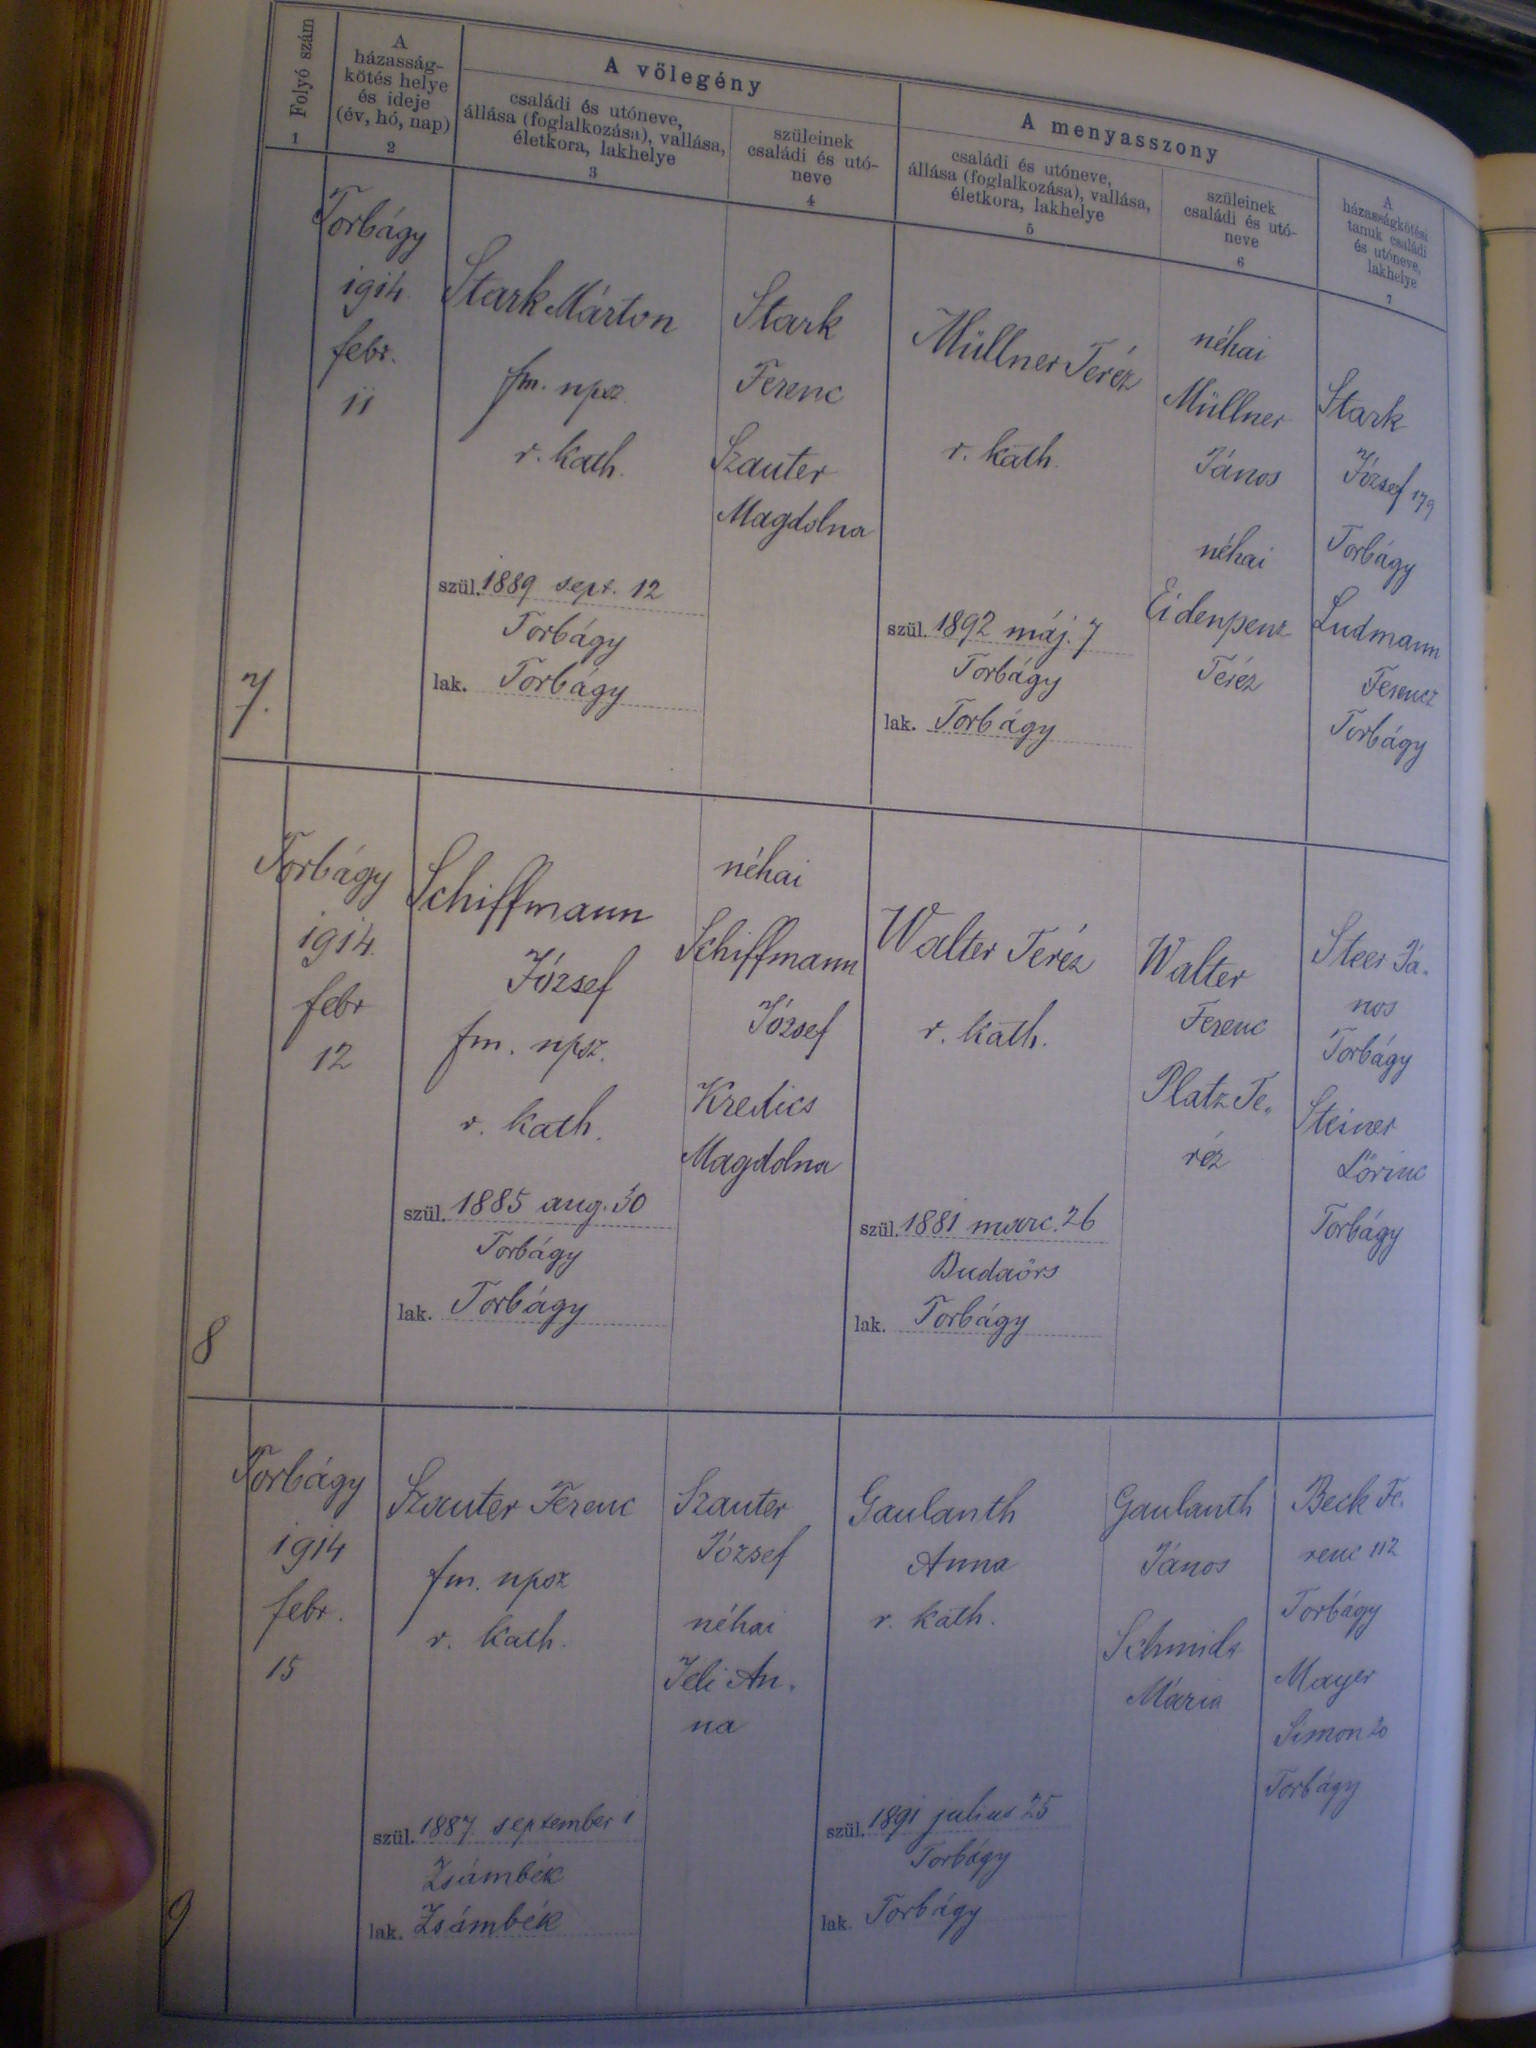 Folyó szám
1
A
házasság-
kötés helye
és ideje
(év, hó, nap)
2
A vőlegény
családi és utóneve,
állása (foglalkozása), vallása,
életkora, lakhelye
3
szüleinek
családi és utó-
neve
4
A menyasszony
családi és utóneve,
állása (foglalkozása), vallása,
életkora, lakhelye
5
szüleinek
családi és utó-
neve
6
A
házasságkötési
tanuk családi
és utóneve,
lakhelye
7
7.
Torbágy
1914.
febr.
11
Stark Márton
fm. npsz.
r. kath.
szül. 1889 sept. 12
Torbágy
lak. Torbágy
Stark
Ferenc
Szauter
Magdolna
Müllner Teréz
r. kath.
szül. 1892 máj. 7
Torbágy
lak. Torbágy
néhai
Müllner
János
néhai
Eidenpenz
Teréz
Stark
József 179
Torbágy
Ludmann
Ferencz
Torbágy
8
Torbágy
1914.
febr
12
Schiffmann
József
fm. npsz.
r. kath.
szül. 1885 aug. 30
Torbágy
lak. Torbágy
néhai
Schiffmann
József
Kredics
Magdolna
Walter Teréz
r. kath.
szül. 1881 marc. 26
Budaörs
lak. Torbágy
Walter
Ferenc
Platz Te-
réz
Steer Já-
nos
Torbágy
Steiner
Lőrinc
Torbágy
9
Torbágy
1914
febr.
15
Szauter Ferenc
fm. npsz
r. kath.
szül. 1887 september 1
Zsámbék
lak. Zsámbék
Szauter
József
néhai
Jeli An-
na
Gaulanth
Anna
r. kath.
szül. 1891 julius 25
Torbágy
lak. Torbágy
Gaulanth
János
Schmidt
Mária
Beck Fe-
renc 112
Torbágy
Mayer
Simon 20
Torbágy